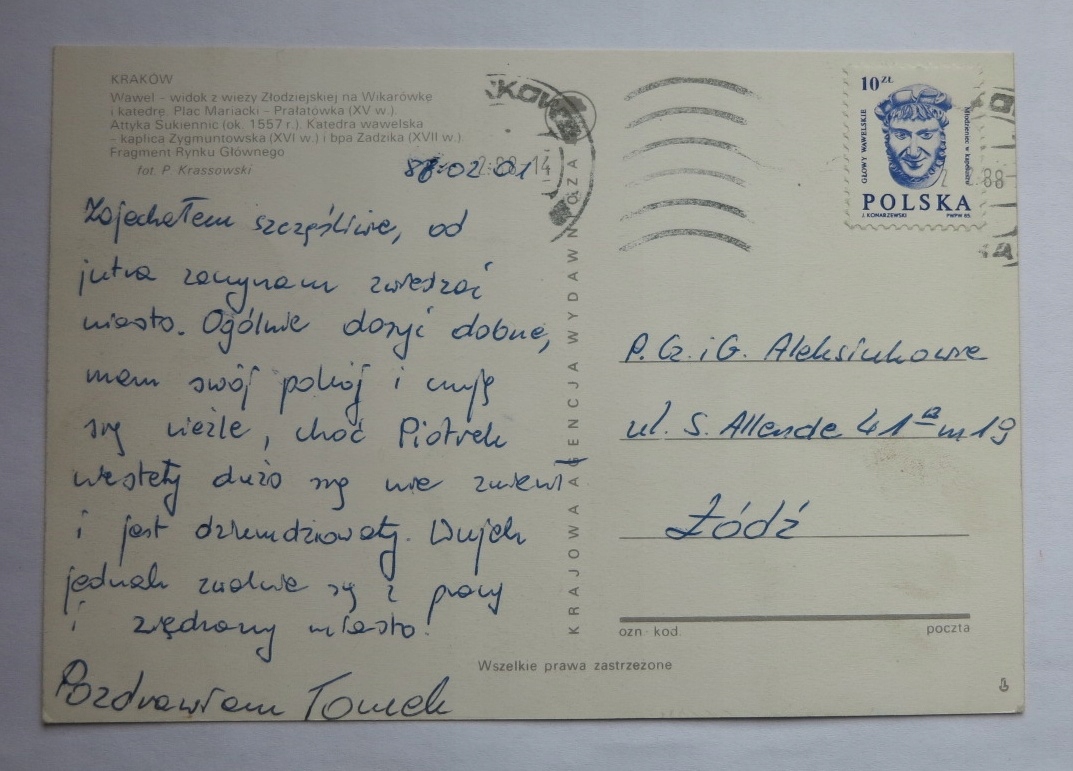 KRAKÓW
Wawel – widok z wieży Złodziejskiej na Wikarówkę
i katedrę. Plac Mariacki – Prałatówka (XV w.).
Attyka Sukiennic (ok. 1557 r.). Katedra wawelska
– kaplica Zygmuntowska (XVI w.) i bpa Zadzika (XVII w.)
Fragment Rynku Głównego
fot. P. Krassowski
88.02.01
Zajechałem szczęśliwie, od
jutra zaczynam zwiedzać
miasto. Ogólnie dosyć dobrze,
mam swój pokój i czuję
się nieźle, choć Piotrek
niestety dużo się nie zmienił
i jest dziwndziowaty. Wujek
jednak zwolnie się z pracy
i zwiedzamy miasto!
Pozdrawiam Tomek
KRAJOWA AGENCJA WYDAWNICZA
10 ZŁ
GŁOWY WAWELSKIE
Młodzieniec w kapeluszu
POLSKA
J. KONARZEWSKI
PWPW 85
P. Cz. i G. Aleksiukowie
ul. S. Allende 41a m 19
Łódź
ozn. kod.
poczta
Wszelkie prawa zastrzeżone